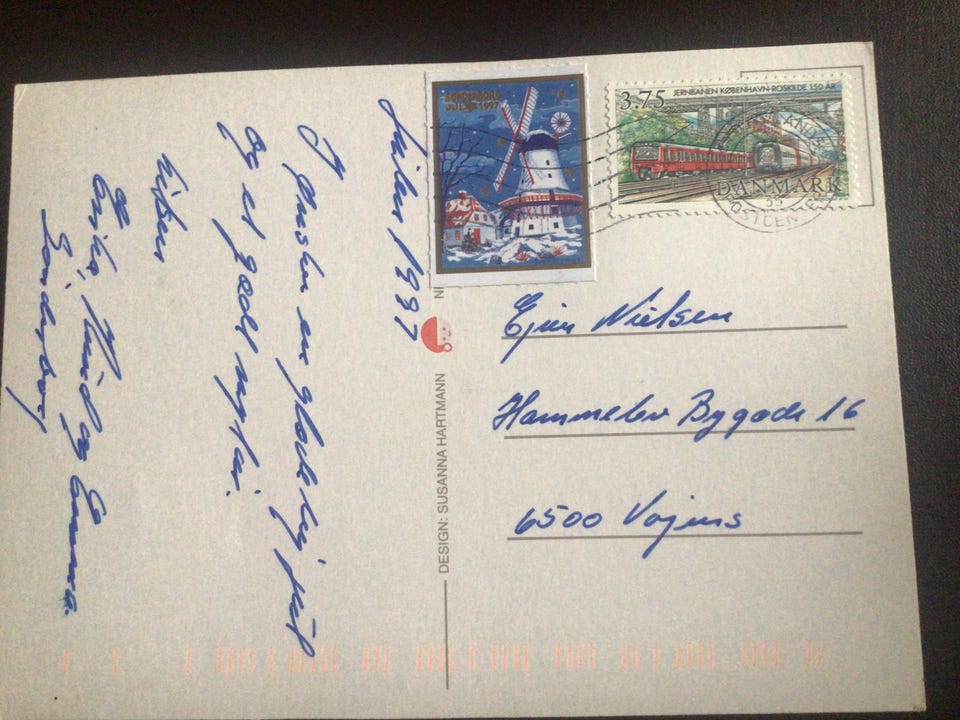 Julen 1997
I ønskes en glædelig jul
og et godt nytår.
Hilsen
Knud og Emma.
Sønderborg
JUL 1997
3.75 JERNBANEN KØBENHAVN-ROSKILDE 150 ÅR
DANMARK
POSTCENTER
Ejner Nielsen
Hammelev Bygade 16
6500 Vojens
DESIGN: SUSANNA HARTMANN